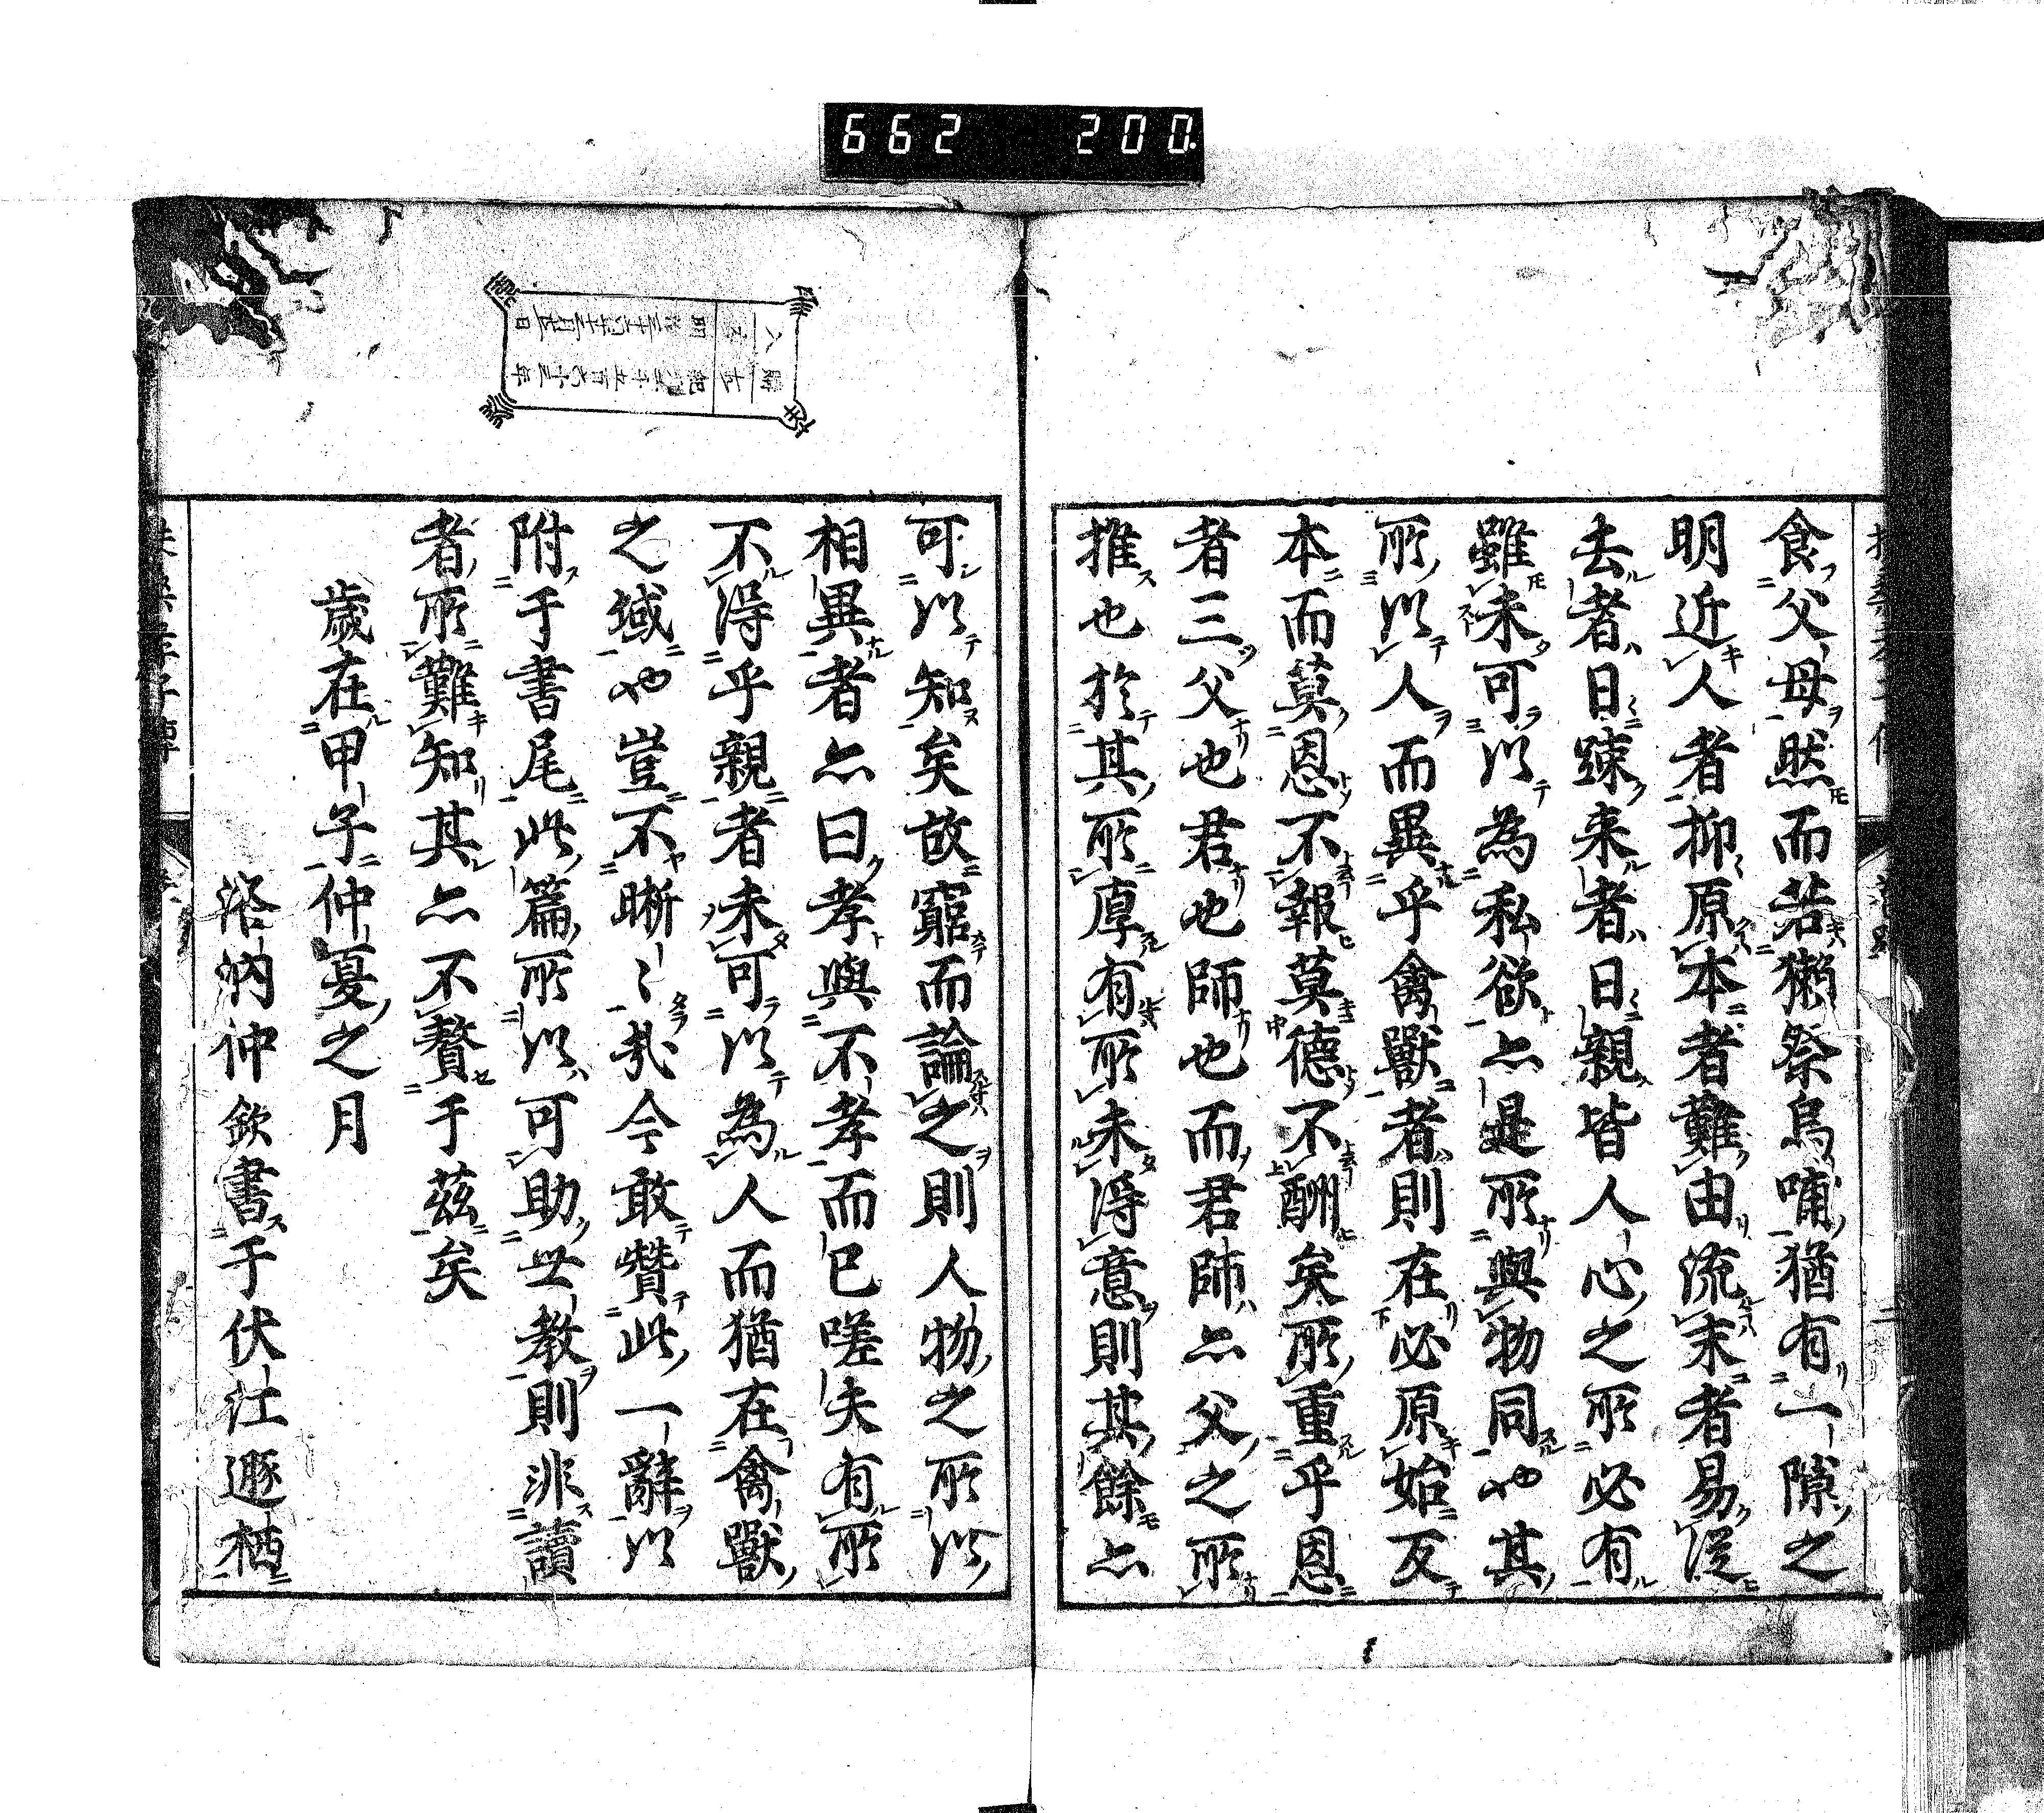 662 200.
食父母然而若獺祭烏哺猶有一隙之
明近人者抑原本者難由流末者易從
去者日踈来者日親皆人心之所必有
雖未可以為私欲亦是所與物同也其
所以人而異乎禽獸者則在必原始反
本而莫恩不報莫德不酬矣所重乎恩
者三父也君也師也而君師亦父之所
推也於其所厚有所未得意則其餘亦
可以知矣故窮而論之則人物之所以
相異者亦曰孝與不孝而已嗟夫有所
不得乎親者未可以為人而猶在禽獸
之域也豈不晰〻哉今敢贊此一辭以
附于書尾此篇所以可助世教則非讀
者所難知其亦不贅于茲矣
歲在甲子仲夏之月
洛汭仲欽書于伏江遯栖